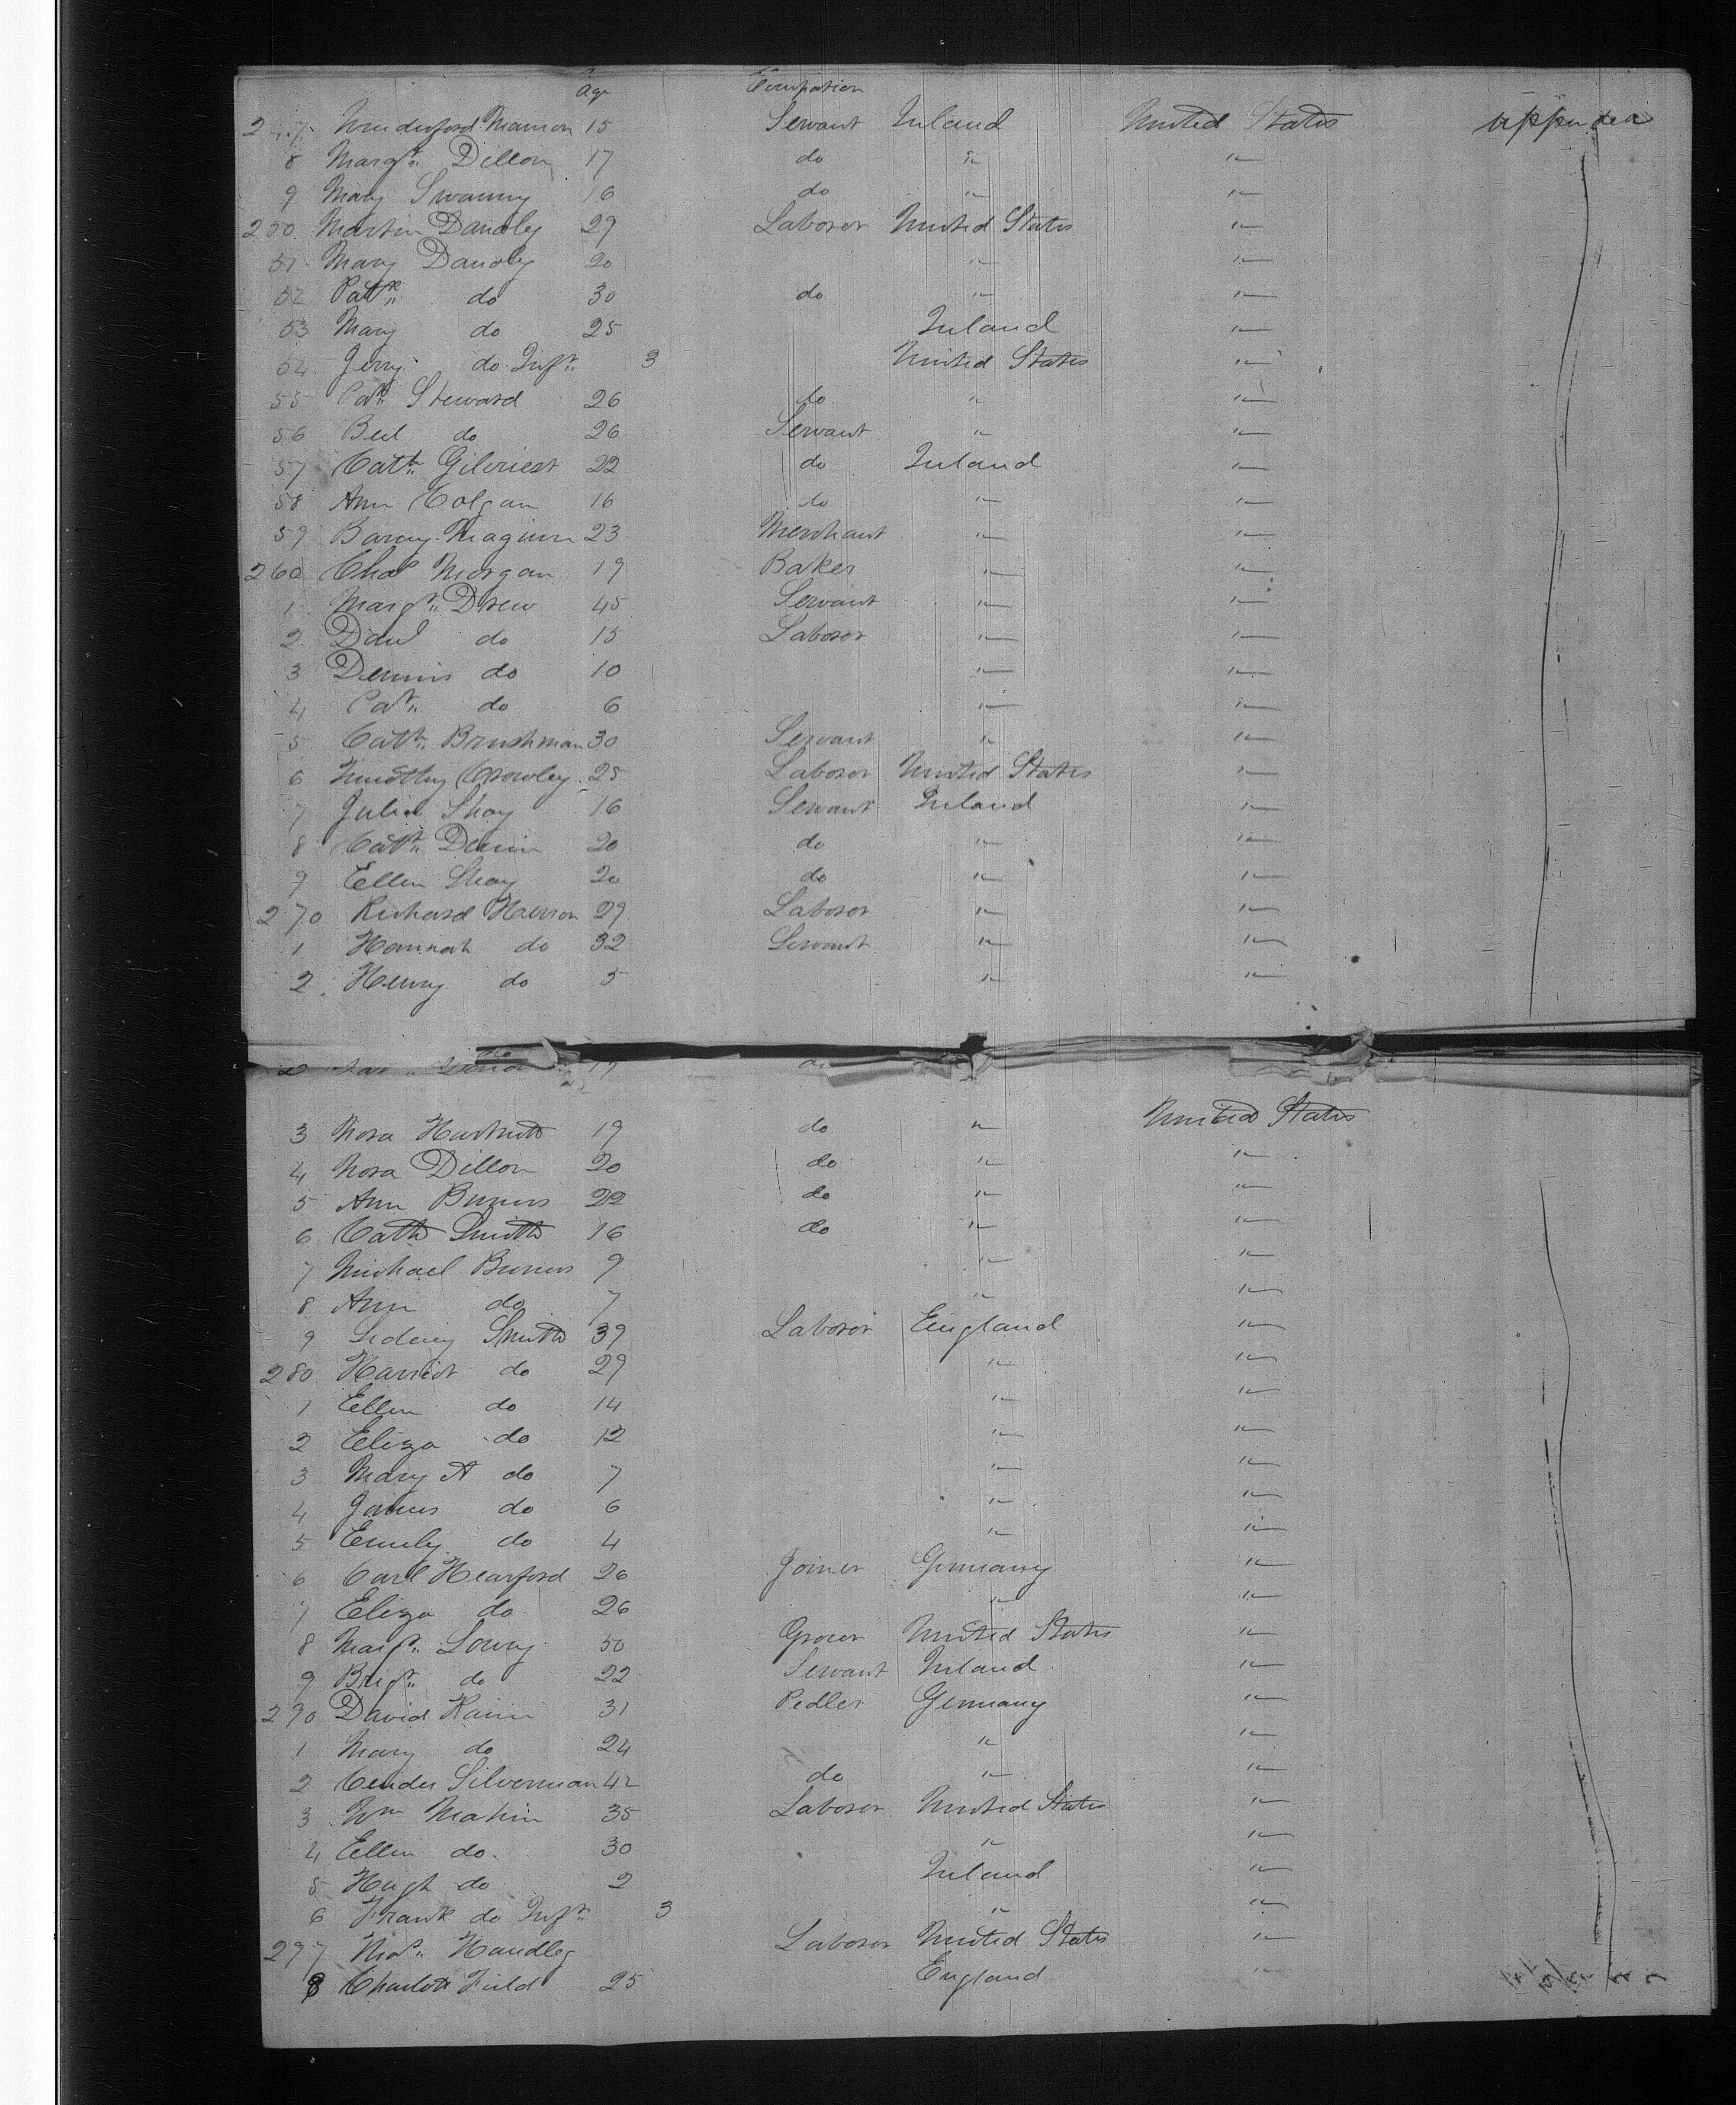 Age Occupation
Mannon 15 Servant Ireland United States upper deck
8 Margt. Dillon 17 do " "
9 Mary Swanny 16 do " "
250 Martin Dandly 29 Laborer United States "
51 Mary Dandly 20 " "
52 Patk. do 30 do " "
53 Mary do 25 Ireland "
54 Jerry do Inft. 3 United States "
55 Pat. Steward 26 do " "
56 do 26 Servant " "
57 Cath. Gilcriest 22 do Ireland "
58 Ann Colgan 16 do " "
59 Barny Maguire 23 Merchant " "
260 Chas Morgan 19 Baker " "
1 Margt. Drew 45 Servant " "
2 Danl do 15 Laborer " "
3 Dennis do 10 " "
4 Pat. do 6 " "
5 Cath. Brushman 30 Servant " "
6 Timothy Crowley 25 Laborer United States "
7 Julia Shay 16 Servant Ireland "
8 Cath. 20 do " "
9 Ellen Shay 20 do " "
270 Richard 29 Laborer " "
1 Hannah do 32 Servant " "
2 Henry do 5 " "
3 Nora Hartnett 19 do " United States
4 Nora Dillon 20 do " "
5 Ann 22 do " "
6 Cath Smith 16 do " "
7 Michael 9 " "
8 Ann do 7 " "
9 Sidney Smith 39 Laborer England "
280 Harriet do 29 " "
1 Ellen do 14 " "
2 Eliza do 12 " "
3 Mary A do 7 " "
4 James do 6 " "
5 Emily do 4 " "
6 Carl Hearford 26 Joiner Germany "
7 Eliza do 26 " "
8 Margt. Lowry 50 Grocer United States "
9 Brigt. do 22 Servant Ireland "
290 David 31 Pedler Germany "
1 Mary do 24 " "
2 Silverman 42 do " "
3 Wm Mahin 35 Laborer United States "
4 Ellen do 30 " "
5 Hugh do 2 Ireland "
6 Frank do Inft. 3 " "
297 Handley Laborer United States "
8 Charlott Field 25 England "